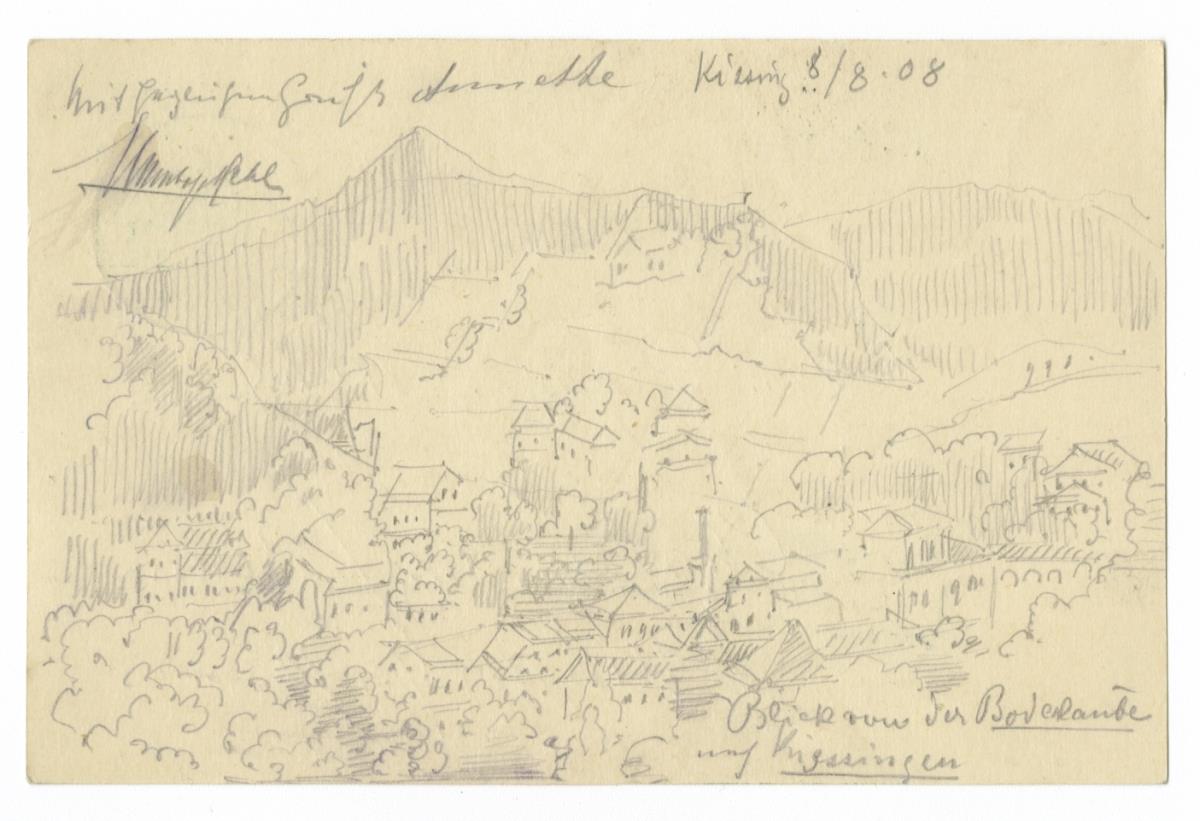 Mit herzlichem Gruß Annette Kissing. 8/8.08
Blick von der Bodenlaube
nach Kissingen